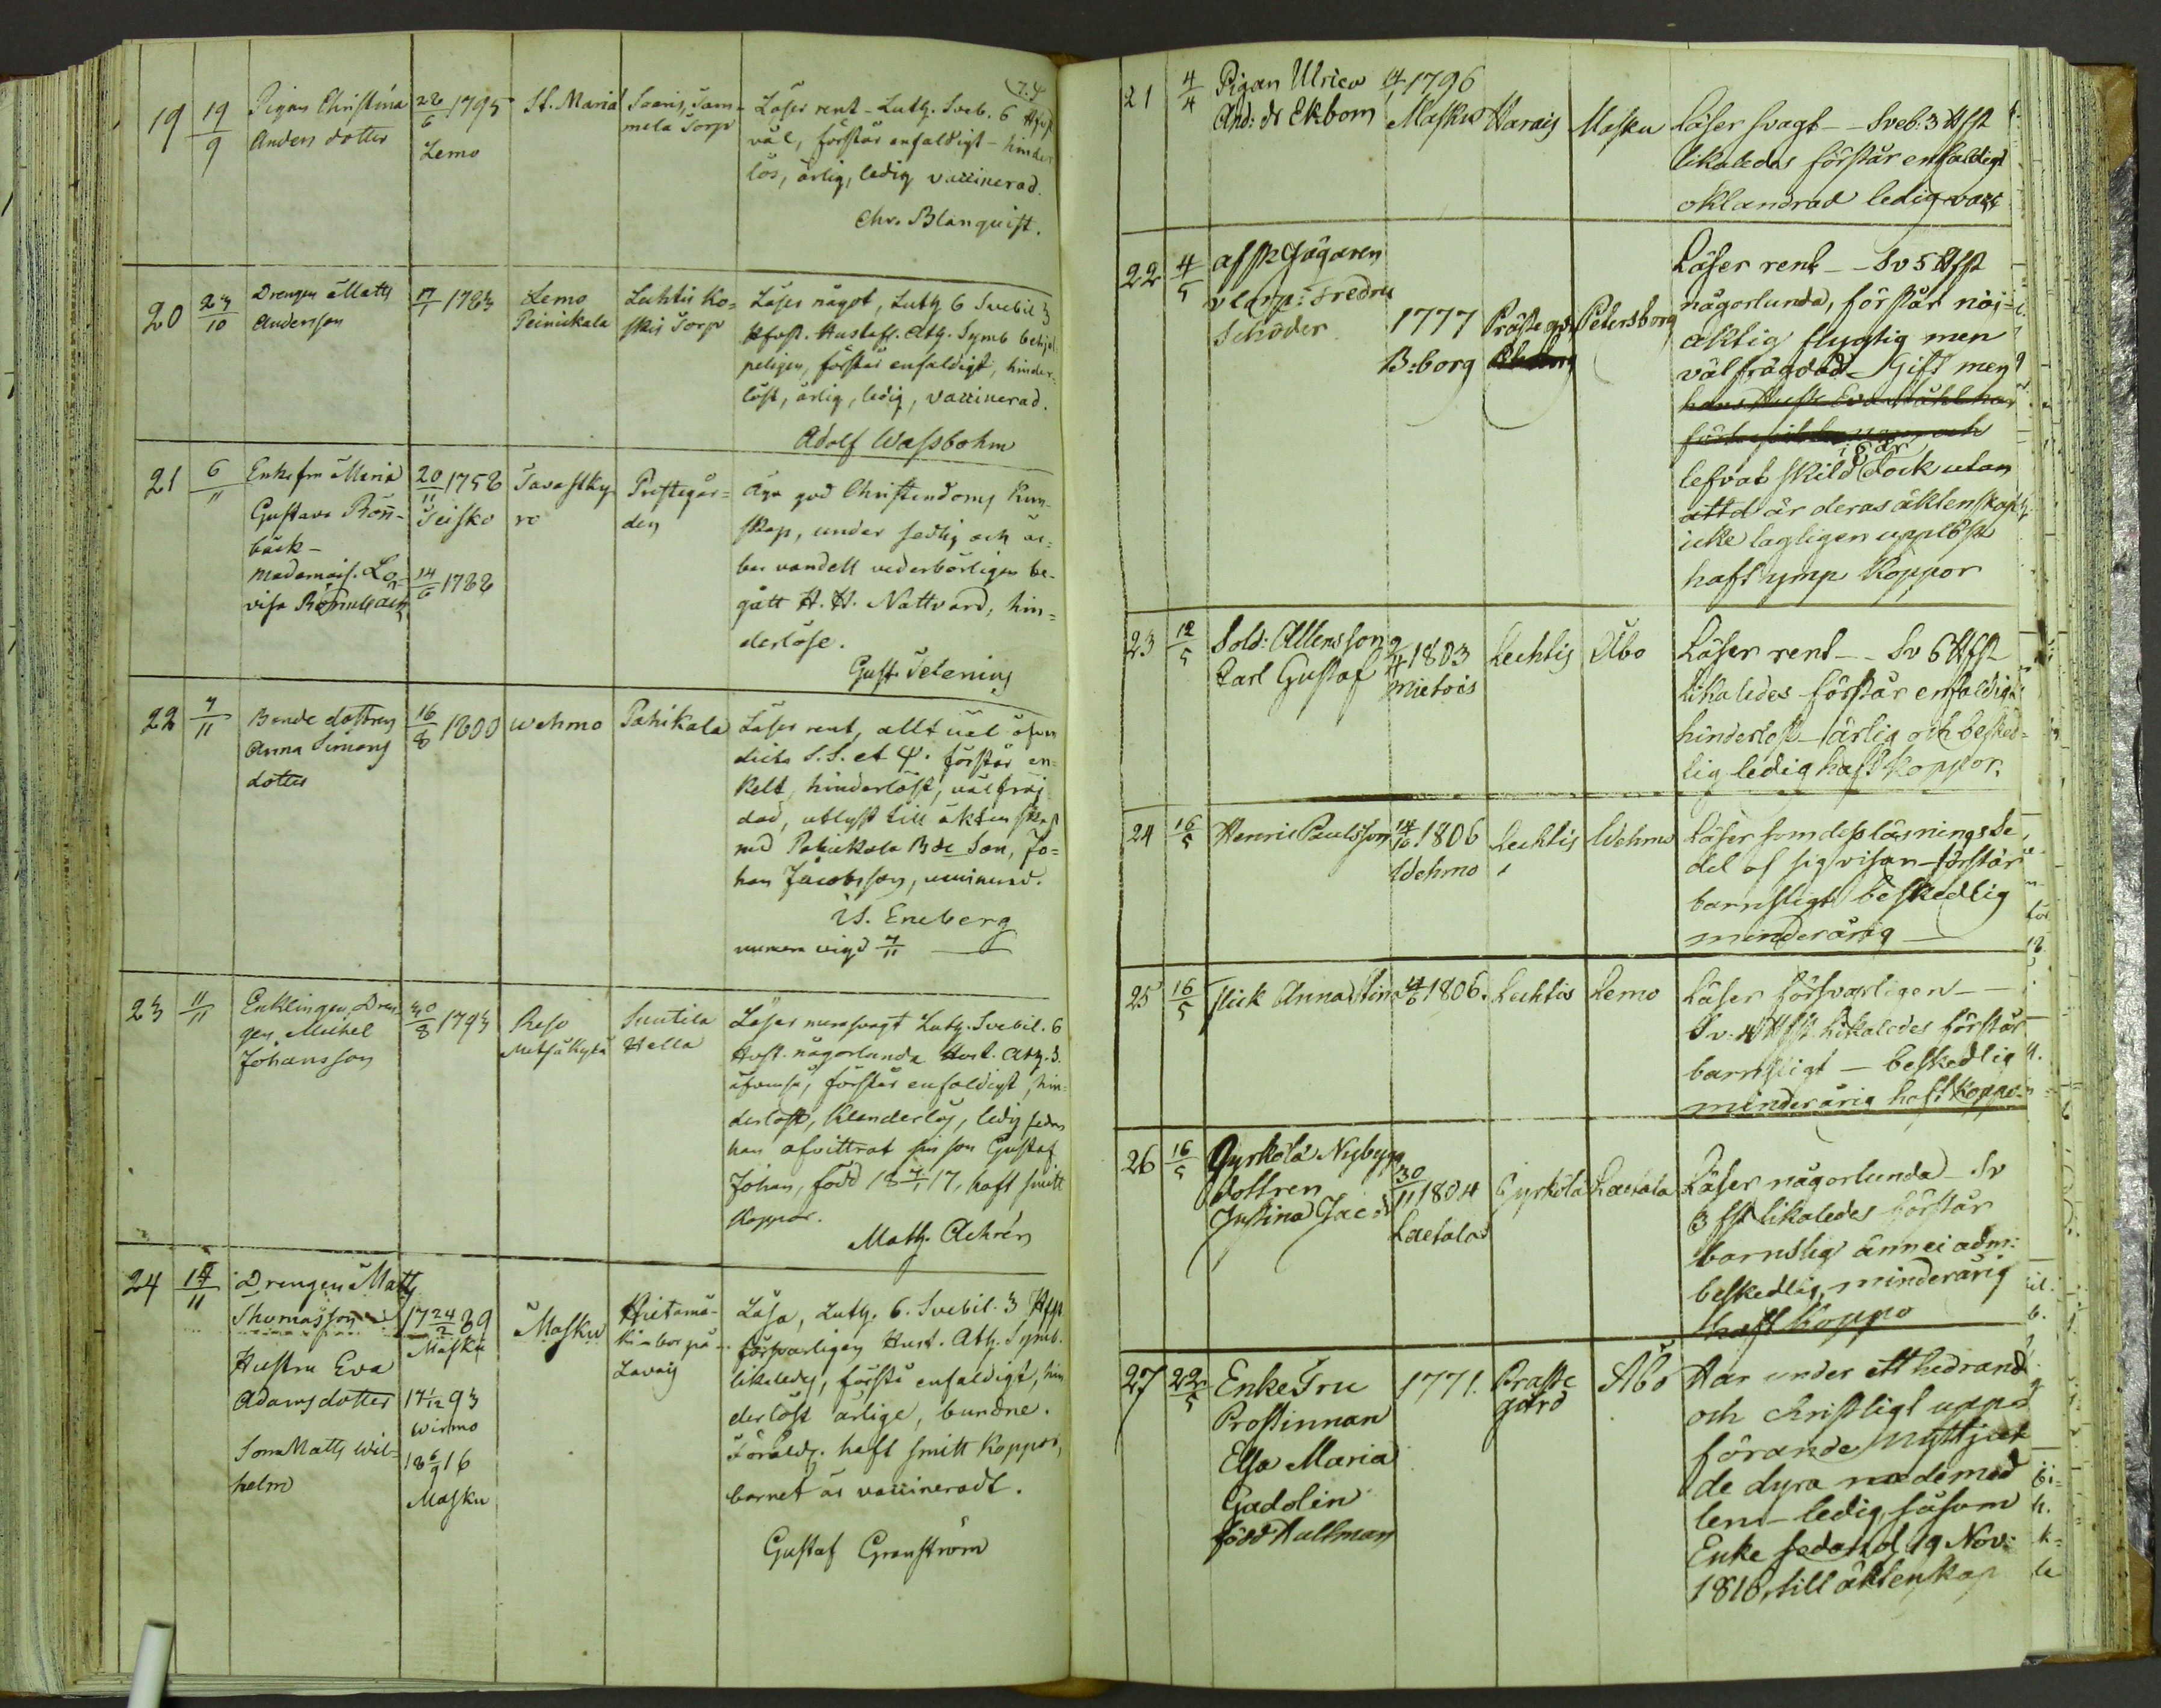 19
19/9
Pigan Christina
Anders dotter
28/6 1795
Lemo
St. Maria
Saaris, Jam-
mela Torp
Läser rent - Luth. Sveb. 6 Hfst
väl, förstår enfaldigt - hinder
lös, ärlig, ledig vaccinerad.
Chr. Blanquist.
20
23/10
Drengen Matts
Andersson
17/7 1783
Lemo
Peinikala
Lechtis Ko-
skis Torp
Läser något, Luth 6 Svebil 3
Hfvst. Hustafl. Ath. Symb behjel-
peligen, förstår enfaldigt, hinder-
löst, ärlig, ledig, vaccinerad.
Adolf Wassbohm
21
6/11
Enkefru Maria
Gustava Rönn-
bäck -
Mademois. Lo-
visa Rönnbäck
20/11 1758
Teisko
14/6 1788
Tavastky
ro
Prestegår-
den
Äga god Christendoms Kun-
skap, under sedlig och är-
bar vandell vederbörligen be-
gått H. H. Nattvard, hin-
derlöse.
Gust. Telenius
22
7/11
Bonde dottren
Anna Simons
dotter
16/8 1800
Wehmo
Pahikala
Läser rent, allt väl äfven
dicta S. S. et Ψ. förstår en-
kelt, hinderlöst, välfräj
dad, utlyst till äktenskap
med Pahikala Bde Son, Jo-
han Jacobsson, vaccinerad.
Is. Eneberg
numera vigd 7/11
23
11/11
Enklingen, Dren-
gen Michel
Johansson
30/8 1793
Reso
Metsäkylä
Suutila
Hella
Läser mer svagt Luth. Svebil. 6
Hvst. någorlunda Hust. Ath. 3.
äfvenså, förstår enfaldigt, hin-
derlöst, klanderlös, ledig sedan
han afvittrat sin son Gustaf
Johan, född 18 7/1 17, haft smitt
Koppor.
Math. Achrén
24
14/11
Drengen Matts
Thomasson
17 24/2 89
Masku
Hustru Eva
Adams dotter
17 1/12 93
Wirmo
Son Matts Wil-
helm
18 6/9 16
Masku
Masku
Hietamä-
ki - bor på
Lavais
Läsa, Luth. 6. Svebil. 3 Hfst
försvarligen Hust. Ath. Symb.
likaledes, förstå enfaldigt, hin
derlöst ärlige, bundne.
Föräldr. haft smitt Koppor,
barnet är vaccineradt.
Gustaf Granström
21
4/4
Pigan Ulrica
And: dr Ekbom
1796
Masku
Harais
Masku
Läser svagt - Sveb: 3 Hfst
likaledes förstår enfaldigt
oklandrad ledig vacc
22
4/5
afsk Jägaren
Fredric
Schöder
1777
B:borg
Präste gd
Petersborg
Läser rent - Sv 5 Hfst
någorlunda, förstår nöj-
aktig flygtig men
välfrägdad - Gift men
i 6 år
lefvat skild dock utan
att är deras äktenskap
icke lagligen upplöst
haft ymp Koppor
23
12/5
Sold: Allensson
Carl Gustaf
2/4 1803
Mietois
Lechtis
Åbo
Läser rent - Sv 6 Hfst
likaledes förstår enfaldigt
hinderlost - ärlig och besked-
lig ledig haft koppor.
24
16/5
Henric Paulsson
14/10 1806
Wehmo
Lechtis
Wehmo
Läser som dess läsningsSe
del af sig visan - förstår
barnsligt beskedlig
minderårig
25
16/5
flick Anna Stina
1806.
Lechtis
Lemo
Läser försvarligen -
Sv. 4 Hfst likaledes förstår
barnsligt - beskedlig
minderårig haft koppo
26
16/5
Gyrkölä Nybygg
dottren
Justina Jac: d
30/11 1804
Laetala
Gyrkölä
Laetala
Läser någorlunda - Sv
3 fst likaledes förstår
barnslig ännei adm:
beskedlig, minderårig
haft Koppo
27
22/5
Enke Fru
Prostinnan
Elsa Maria
Gadolin
född Hallman
1771.
Præste
gård
Åbo
Har under ett hedrand
och christligt uppe
förande nyttjat
de dyra nådemed
len - ledig såsom
Enke sedan d. 19 Nov:
1816, till äktenskap